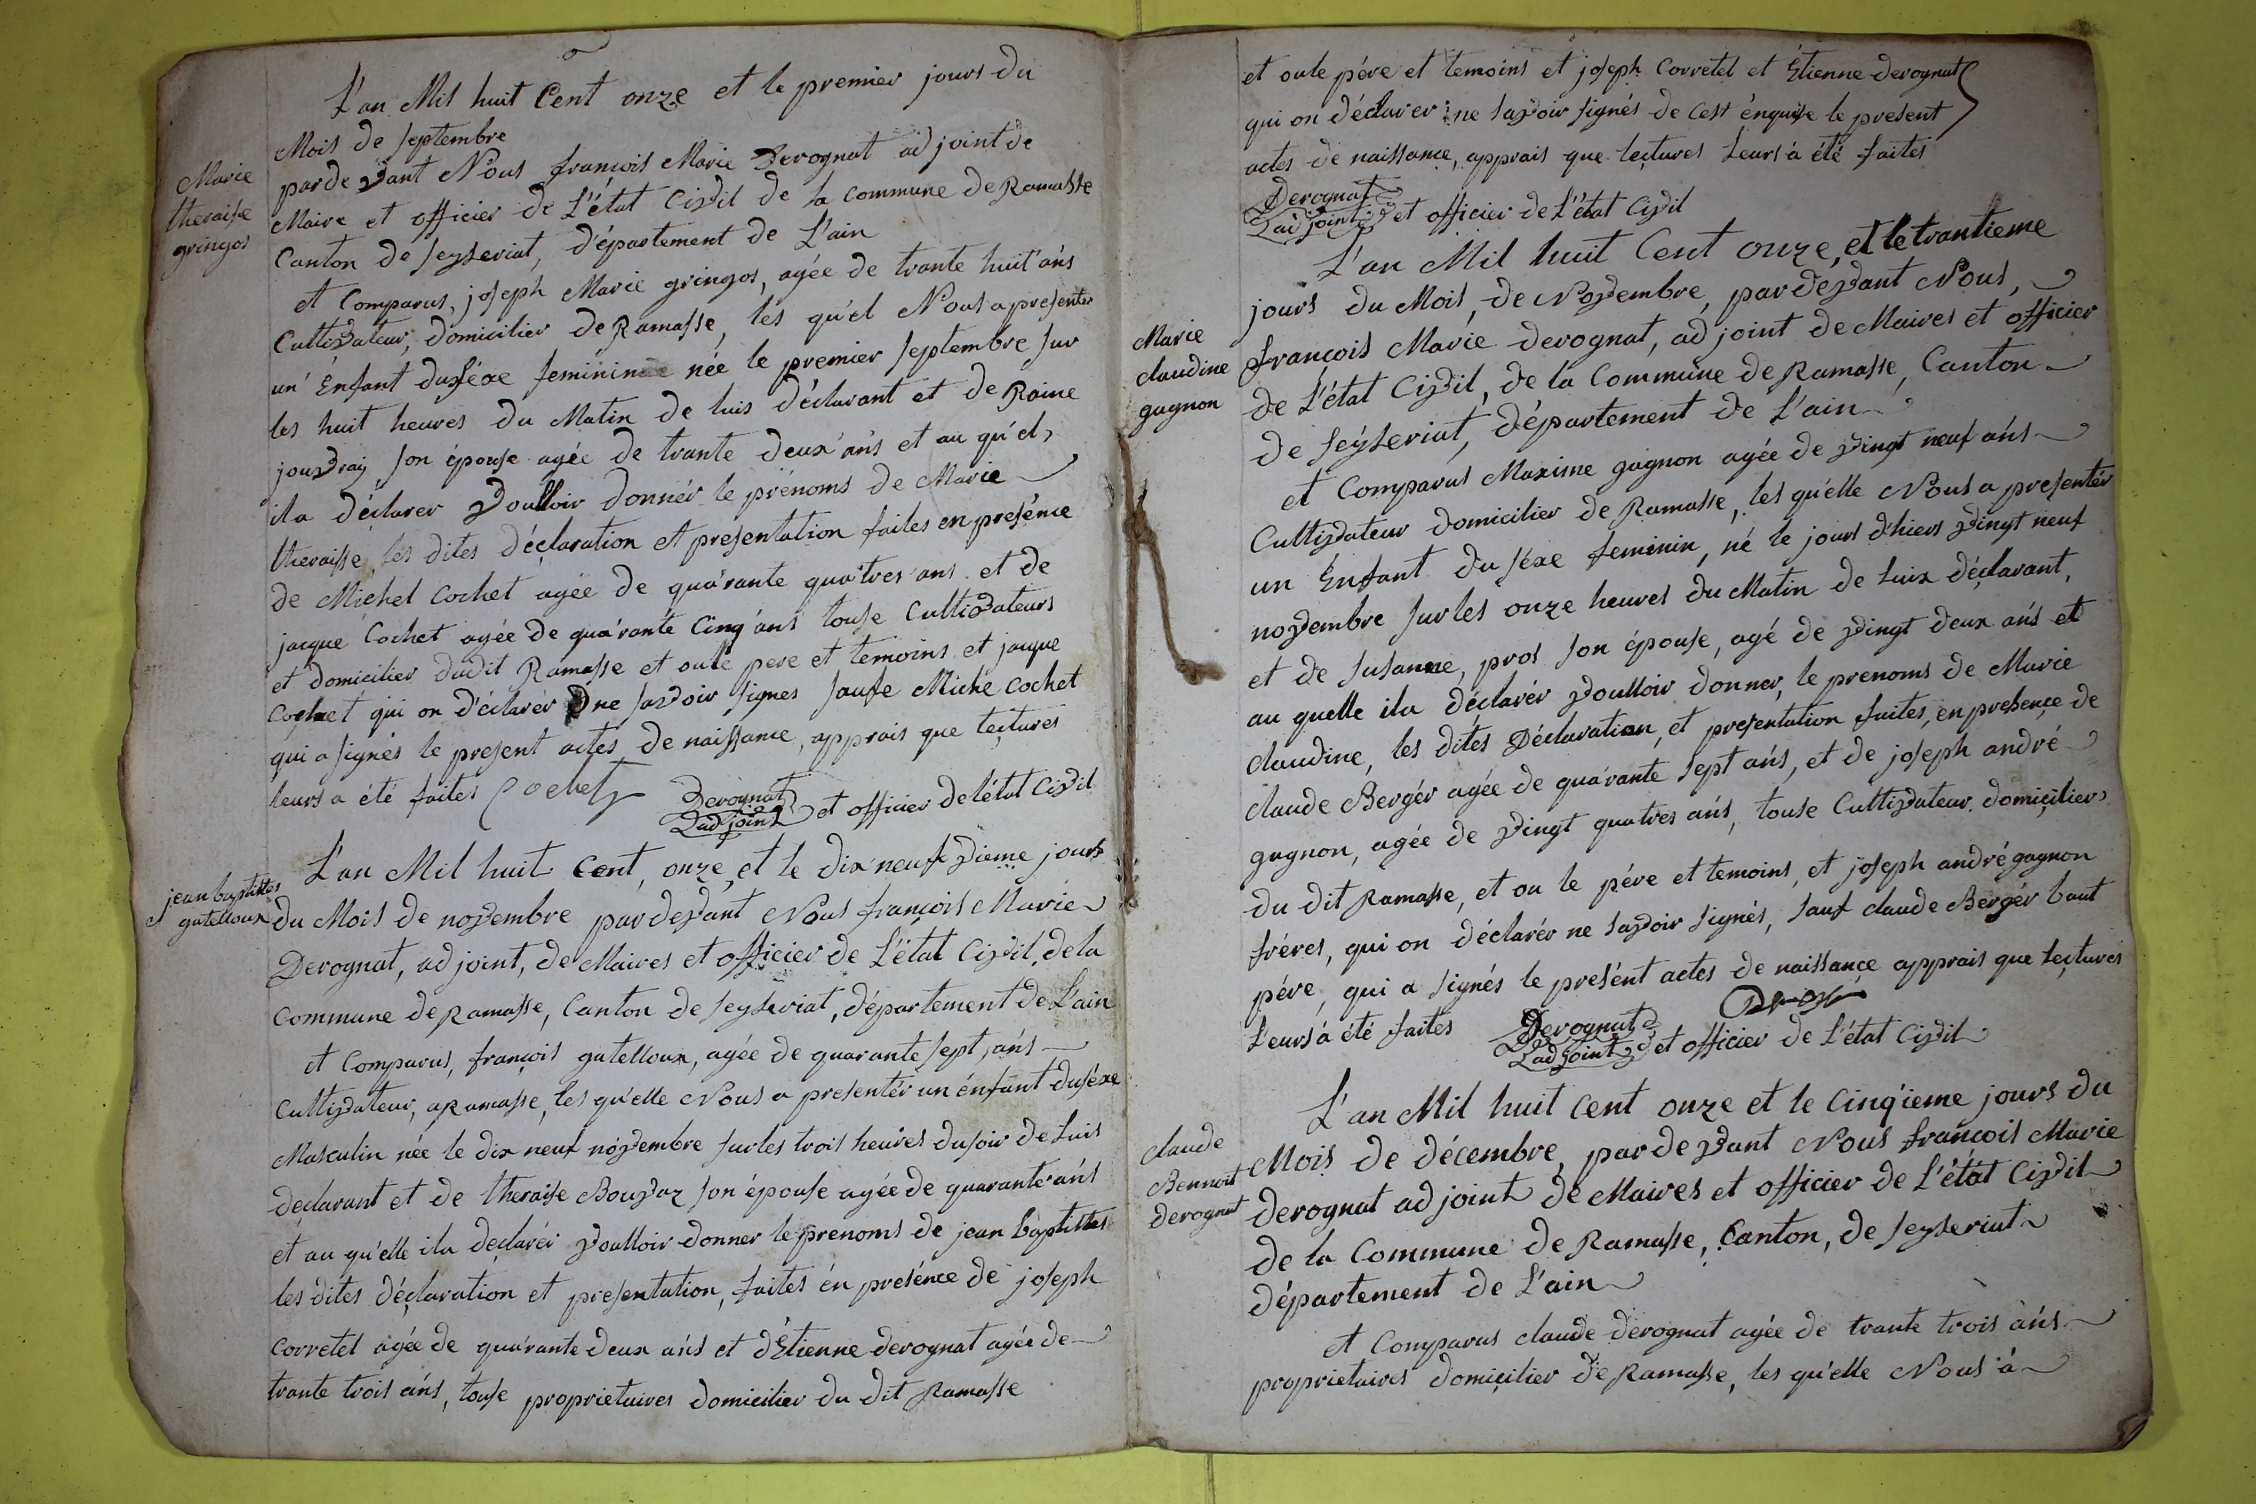 L'an Mil huit Cent onze et le premier jours du
Mois de septembre
Marie
theraise
gringos
par de vant Nous francois Marie Derognat ad joint de
Maire et officier de L'état Civil de la commune de Ramasse
Canton de seyseriat, département de L'ain
et Comparus, joseph Marie gringos, agée de trante huit ans
Cultivateur, domicilier de Ramasse, les qu'el Nous a presenter
un Enfant du séxe feminine née le premier septembre sur
les huit heures du Matin de luis déclarant et de Raine
jouvray son épouse agée de trante deux ans et au qu'el
ila déclarer voulloir donnér le prénoms de Marie
theraisse, les dites déclaration et presentation faites en presénce
de Michel Cochet agée de quarante quatres ans et de
jacque Cochet agée de quarante Cinq ans touse Cultivateurs
et domicilier dudit Ramasse et oule pere et temoins et jacque
Cochet qui on déclarér ne savoir signes saufe Miche Cochet
qui a signés le present actes de naissance, apprais que lectures
leurs a été faites Cochet
Derognat
L'ad joint et officier de l'état Civil
jean baptistes
gatelloux
L'an Mil huit Cent, onze, et le dix neufe vieme jours
du Mois de novembre par devant Nous françois Marie
Derognat, ad joint, de Maires et officier de L'état Civil, de la
Commune de Ramasse, Canton de seyseriat, département de L'ain
et Comparus, françois gatelloux, agée de quarante sept, ans
Cultivateur, a Ramasse, les qu'elle Nous a presentér un énfant du séxe
Masculin née le dix neuf novembre sur les trois heures du soir de luis
declarant et de theraise Bouvaz son épouse agée de quarante ans
et au qu'elle ila declarér voulloir donner le prenoms de jean baptistes
les dites déclaration et presentation, faites én presénce de joseph
Corretel agée de quarante deux ans et d'Etienne derognat agée de
trante trois ans, touse proprietaires domicilier du dit Ramasse
et oule pére et temoins et joseph Corretel et Etienne derognat
qui on déclarer ne savoir signés de Cest énquise le present
actes de naissance, apprais que lectures leurs a été faites
Derognat
L'ad joint et officier de L'état Civil
Marie
claudine
gagnon
L'an Mil huit Cent onze, et le trantieme
jours du Mois, de Novembre, par devant Nous,
françois Marie derognat, ad joint de Maires et officier
de L'état Civil, de la Commune de Ramasse, Canton
de seyseriat, département de L'ain
et Comparus Maxime gagnon agée de vingt neuf ans
Cultivateur domicilier de Ramasse, les qu'elle Nous a presentér
un Enfant du séxe feminin, né le jours d'hiers vingt neuf
novembre sur les onze heures du Matin de luix déclarant,
et de susanne, pros son épouse, agé de vingt deux ans et
au quelle ila déclarér voulloir donner, le prenoms de Marie
claudine, les dites Déclaration, et presentation faites, en presence de
claude Bergér agée de quarante sept ans, et de joseph andré
gagnon, agée de vingt quatres ans, touse Cultivateur domicilier
du dit Ramasse, et ou le pére et temoins, et joseph andré gagnon
fréres, qui on déclarér ne savoir signés, sauf claude Bergér baut
pére, qui a signés le presént actes de naissance apprais que lectures
Leurs a été faites
Derognat
L'ad joint et officier de L'état Civil
claude
Bennoit
derognat
L'an Mil huit cent onze et le Cinqieme jours du
Mois de décembre, par de vant Nous françois Marie
derognat ad joint de Maires et officier de L'état Civil
de la Commune de Ramasse, Canton, de seyseriat
département de L'ain
et Comparus claude derognat agée de trante trois ans
proprietaires domicilier de Ramasse, les qu'elle Nous a